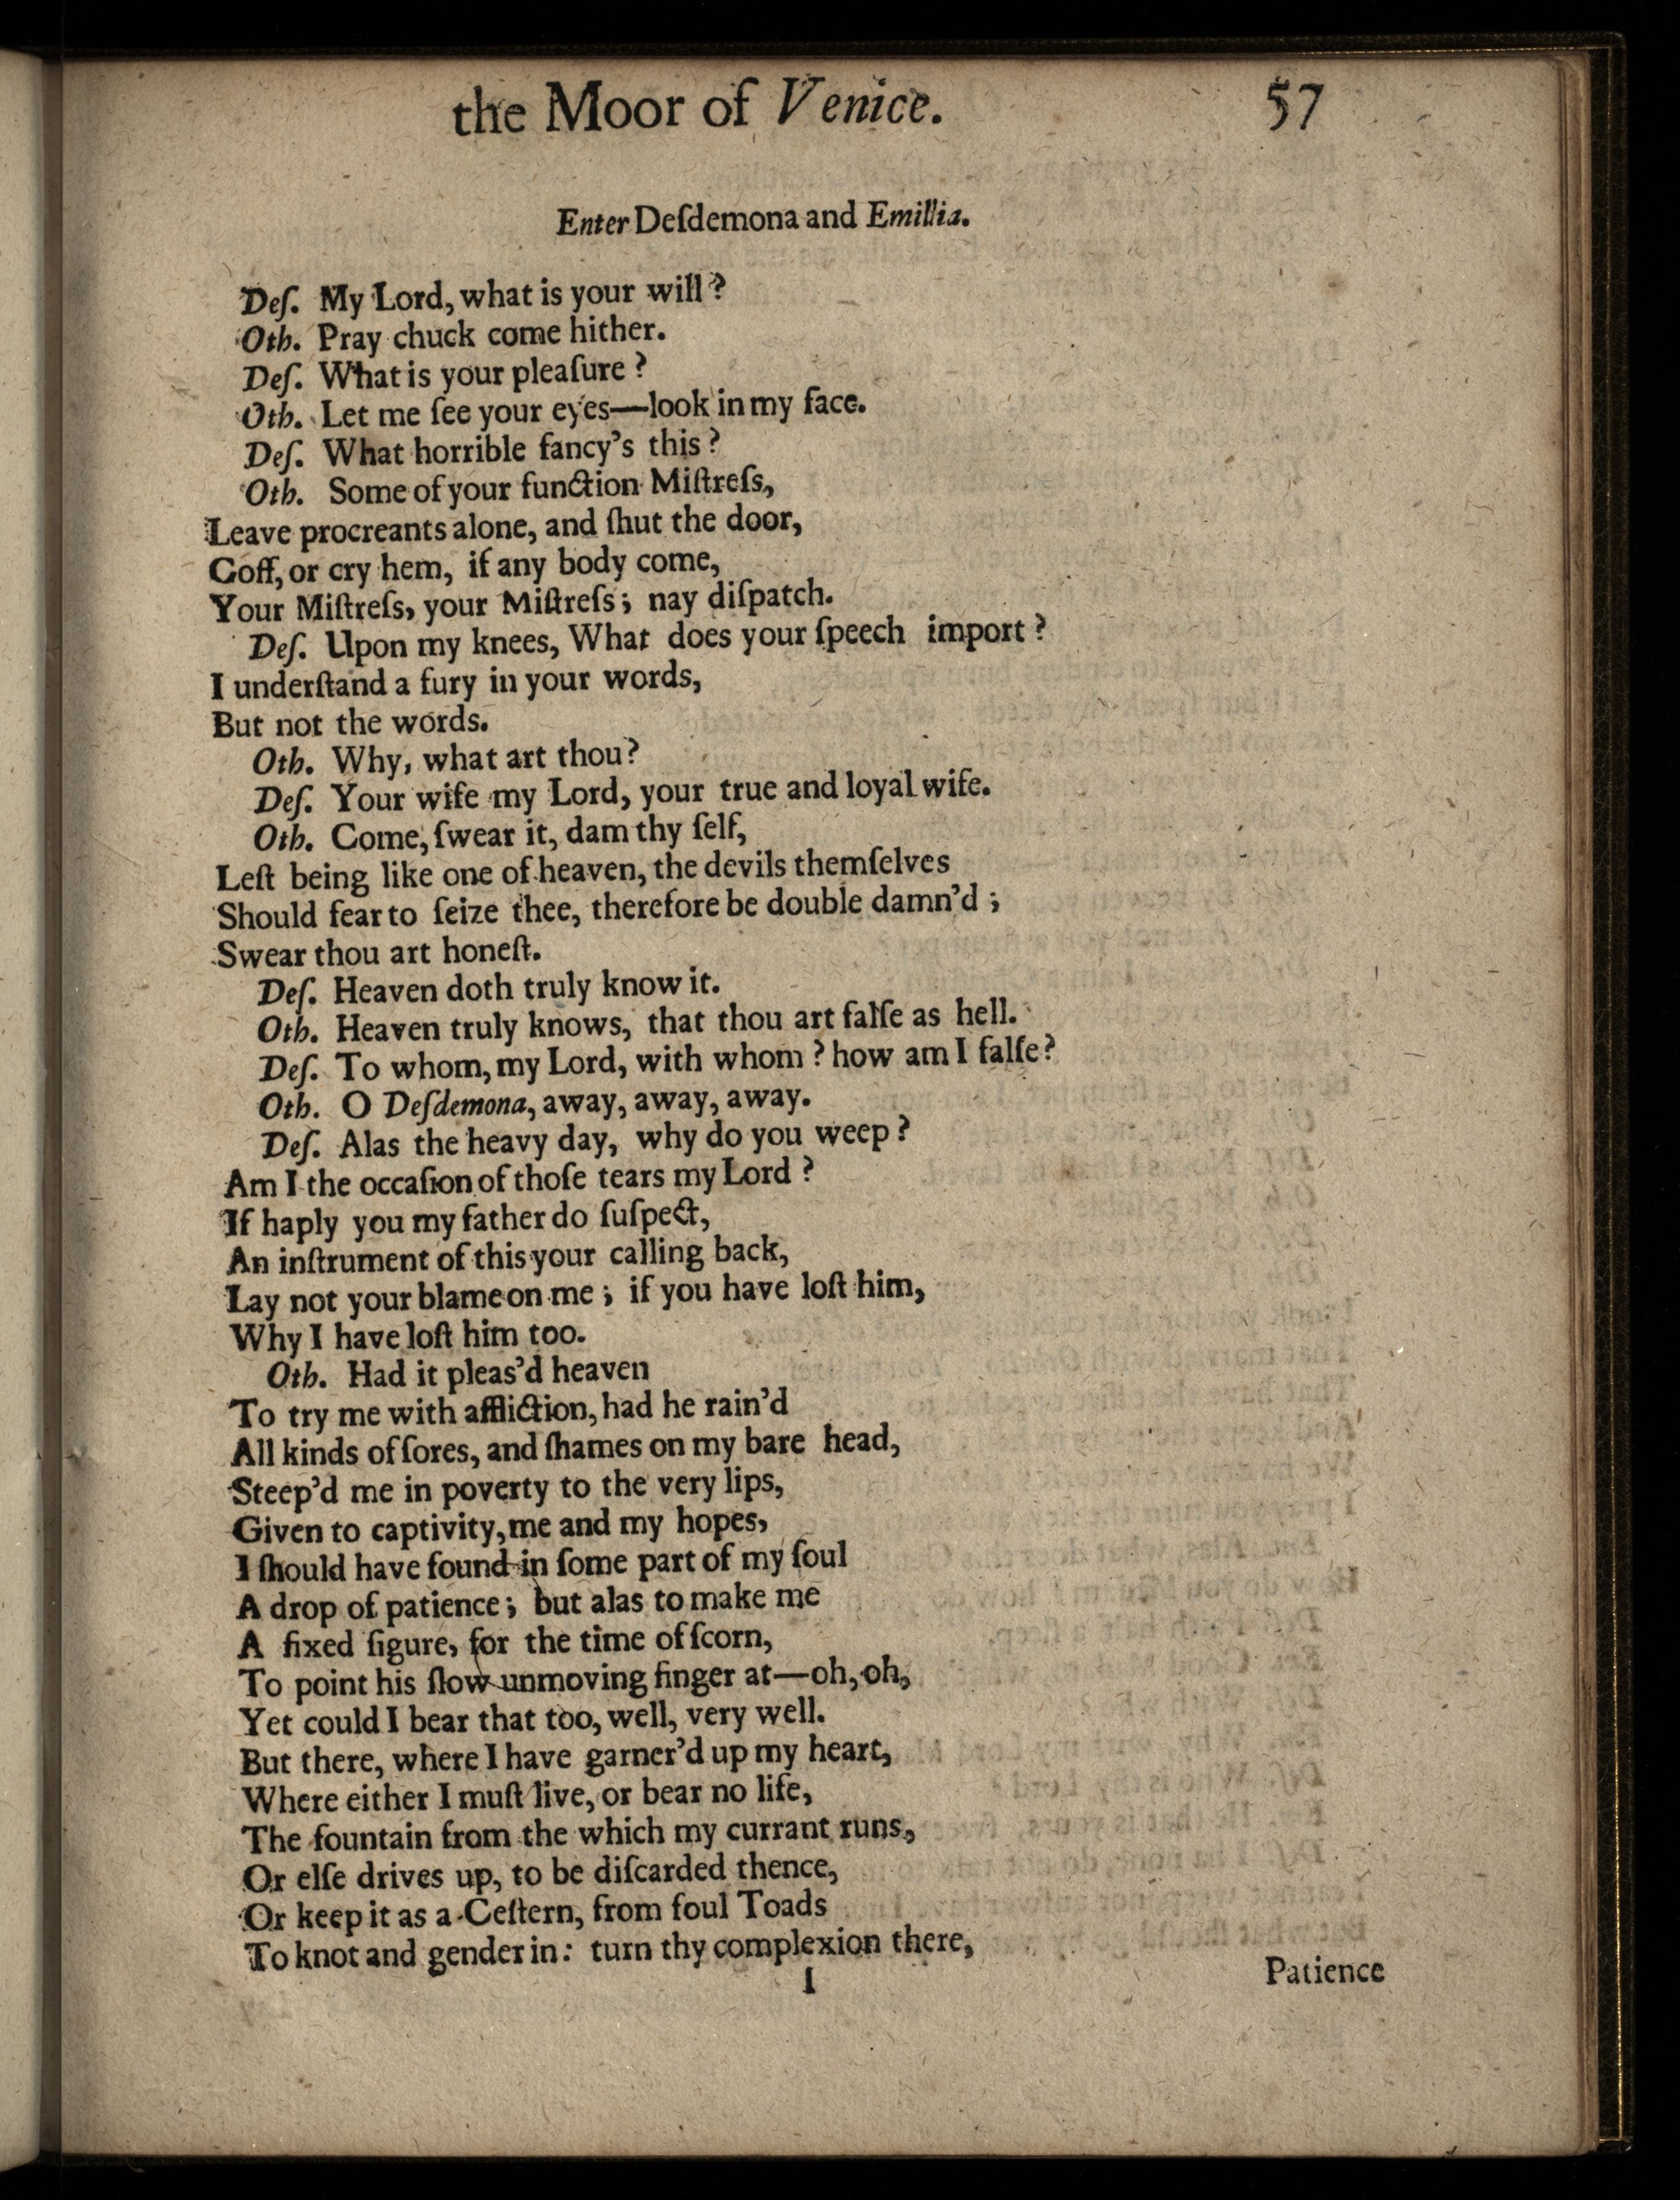 the Moor of Venice. 57
Enter Deſdemona and Emillia.
Deſ. My Lord, what is your will?
Oth. Pray chuck come hither.
Deſ. What is your pleaſure?
Oth. Let me ſee your eyes—look in my face.
Deſ. What horrible fancy's this?
Oth. Some of your function Miſtreſs,
Leave procreants alone, and ſhut the door,
Coff, or cry hem, if any body come,
Your Miſtreſs, your Miſtreſs; nay diſpatch.
Deſ. Upon my knees, What does your ſpeech import?
I underſtand a fury in your words,
But not the words.
Oth. Why, what art thou?
Deſ. Your wife my Lord, your true and loyal wife.
Oth. Come, ſwear it, dam thy ſelf,
Leſt being like one of heaven, the devils themſelves
Should fear to ſeize thee, therefore be double damn'd;
Swear thou art honeſt.
Deſ. Heaven doth truly know it.
Oth. Heaven truly knows, that thou art falſe as hell.
Deſ. To whom, my Lord, with whom? how am I falſe?
Oth. O Deſdemona, away, away, away.
Deſ. Alas the heavy day, why do you weep?
Am I the occaſion of thoſe tears my Lord?
If haply you my father do ſuſpect,
An inſtrument of this your calling back,
Lay not your blame on me; if you have loſt him,
Why I have loſt him too.
Oth. Had it pleas'd heaven
To try me with affliction, had he rain'd
All kinds of ſores, and ſhames on my bare head,
Steep'd me in poverty to the very lips,
Given to captivity, me and my hopes,
I ſhould have found in ſome part of my ſoul
A drop of patience; but alas to make me
A fixed figure, for the time of ſcorn,
To point his ſlow unmoving finger at—oh, oh,
Yet could I bear that too, well, very well.
But there, where I have garner'd up my heart,
Where either I muſt live, or bear no life,
The fountain from the which my currant runs,
Or elſe drives up, to be diſcarded thence,
Or keep it as a Ceſtern, from foul Toads
To knot and gender in: turn thy complexion there,
I Patience